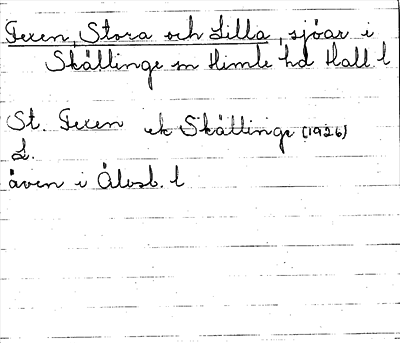 Texen, Stora och Lilla, sjöar i
Skällinge sn Himle hd Hall. l
St. Texen ek Skällinge (1926)
L.
även i Älvsb. l